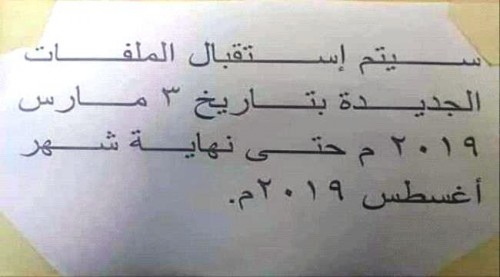 سيتم إستقبال الملفات
الجديدة بتاريخ ٣ مارس
٢٠١٩ م حتى نهاية شهر
أغسطس ٢٠١٩م.